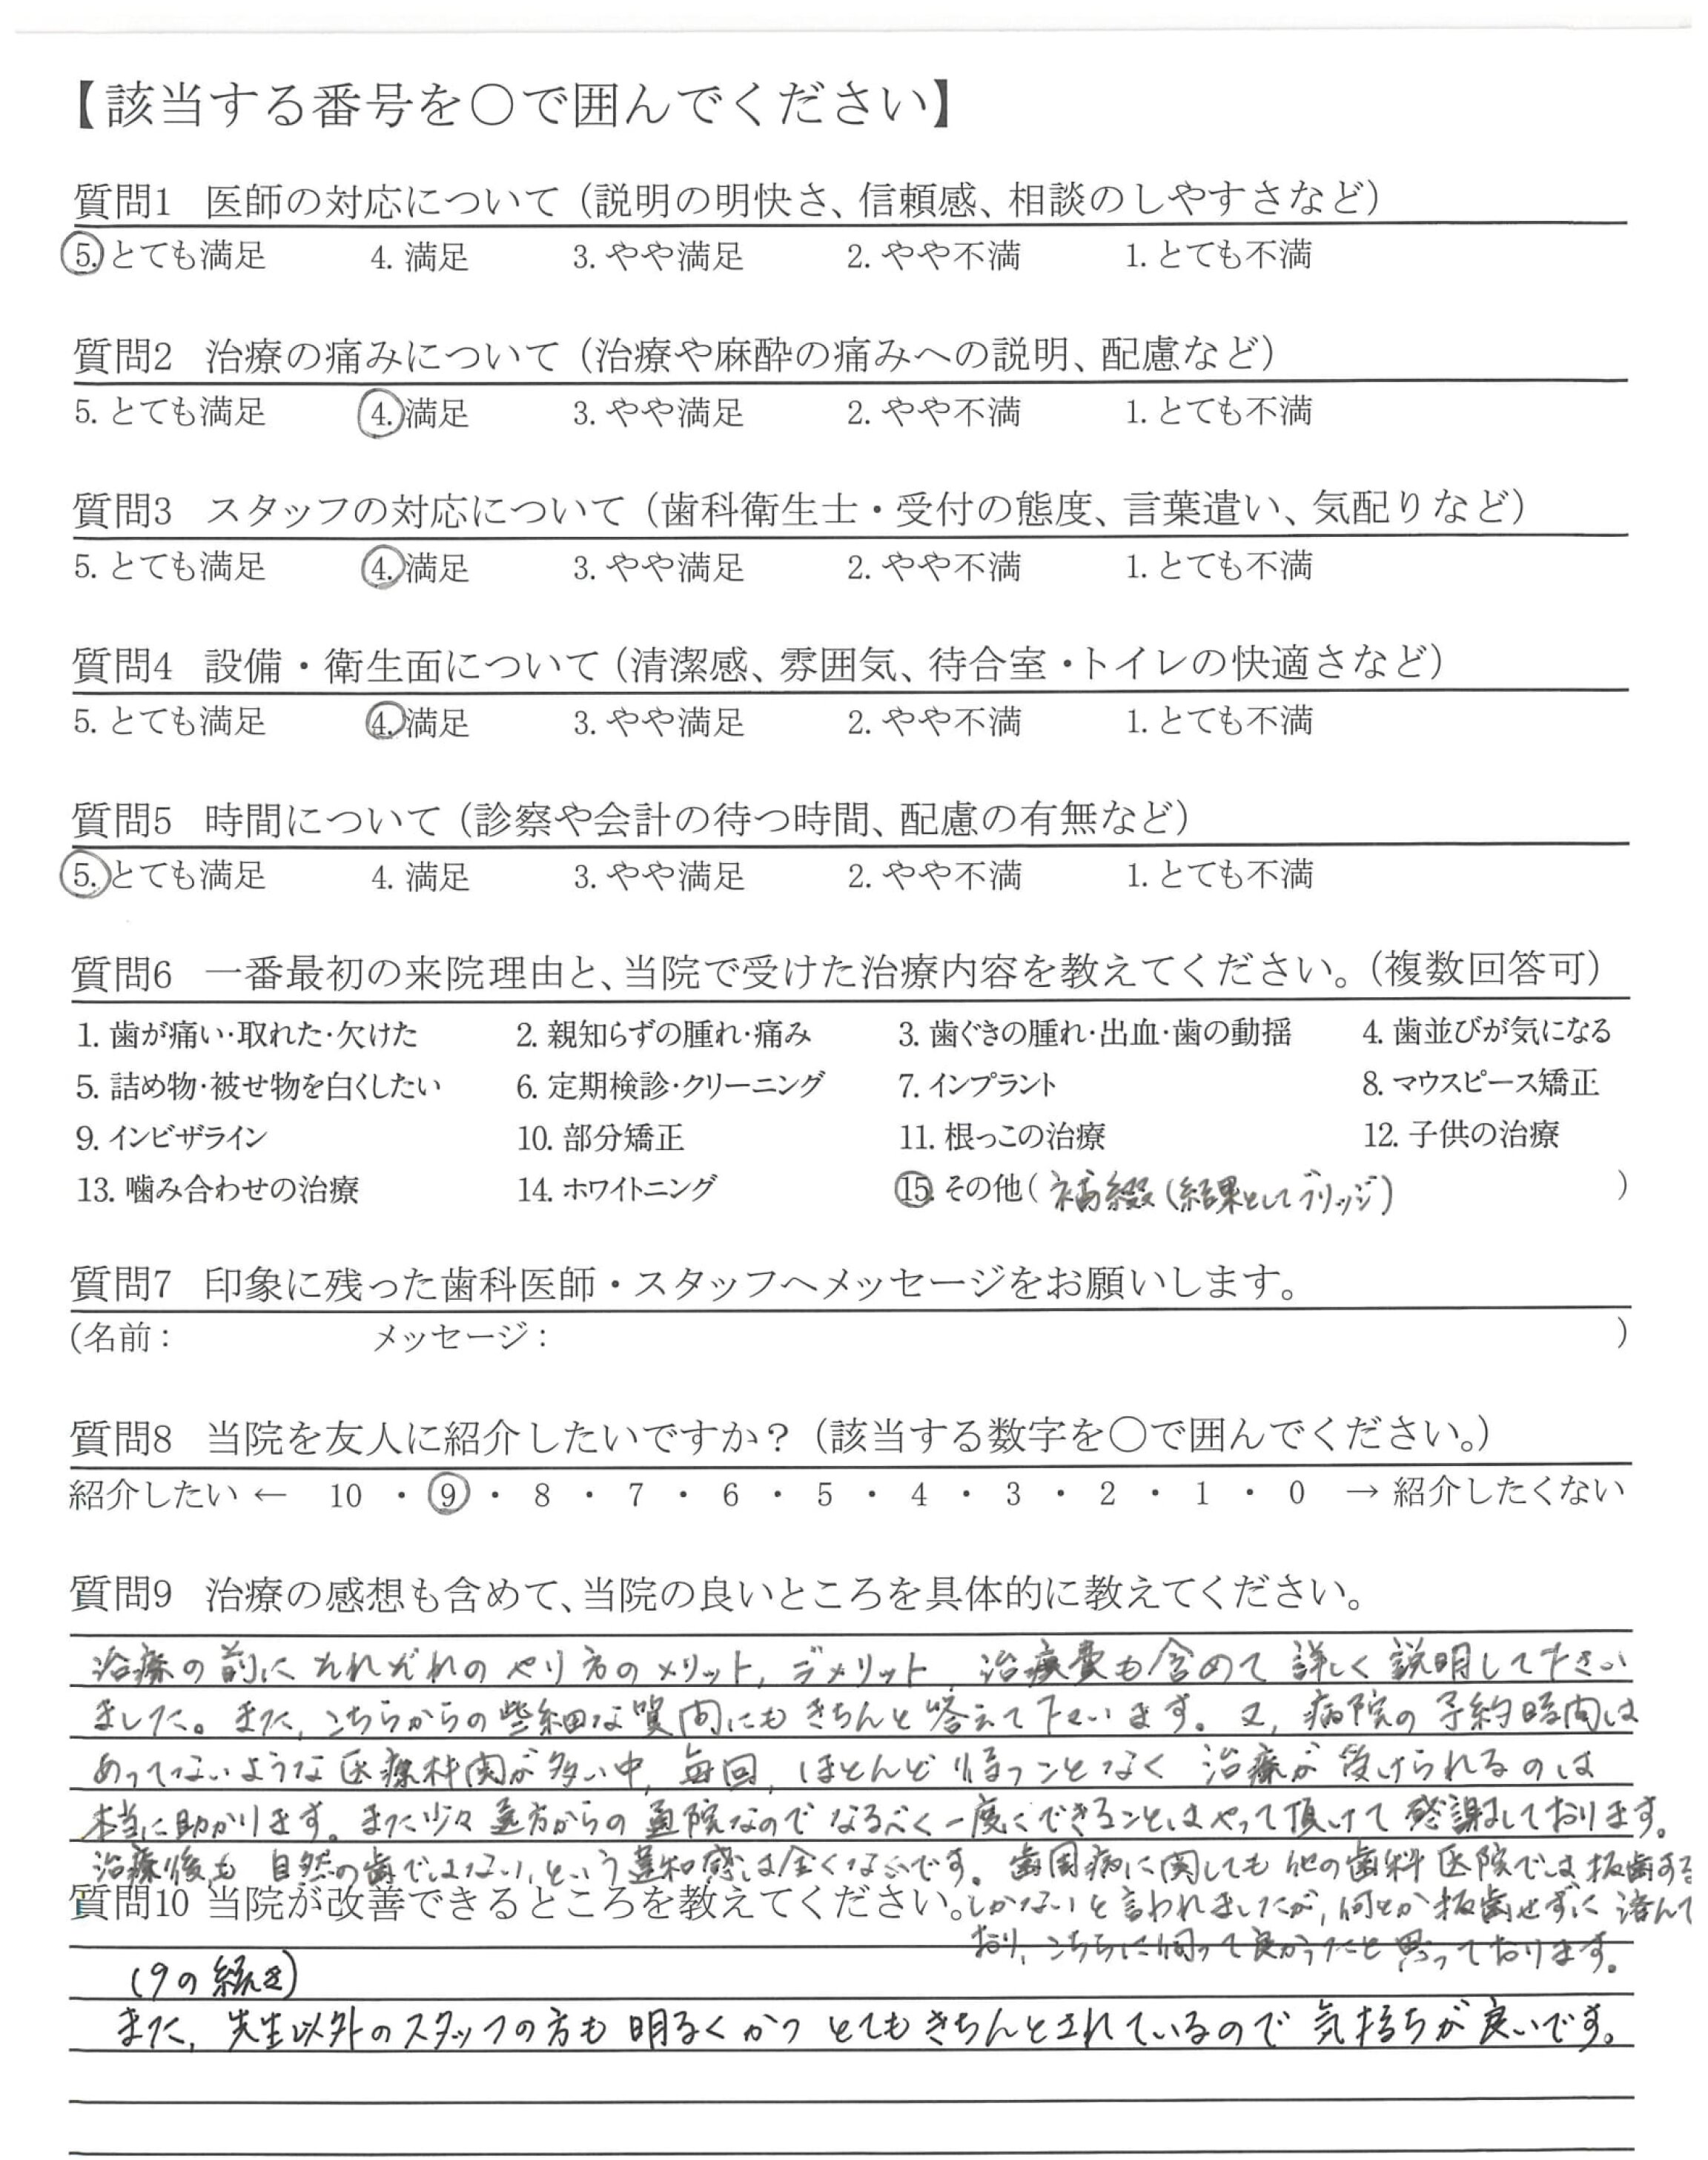 【該当する番号を○で囲んでください】
質問1 医師の対応について（説明の明快さ、信頼感、相談のしやすさなど）
5. とても満足 4. 満足 3. やや満足 2. やや不満 1. とても不満
質問2 治療の痛みについて（治療や麻酔の痛みへの説明、配慮など）
5. とても満足 4. 満足 3. やや満足 2. やや不満 1. とても不満
質問3 スタッフの対応について（歯科衛生士・受付の態度、言葉遣い、気配りなど）
5. とても満足 4. 満足 3. やや満足 2. やや不満 1. とても不満
質問4 設備・衛生面について（清潔感、雰囲気、待合室・トイレの快適さなど）
5. とても満足 4. 満足 3. やや満足 2. やや不満 1. とても不満
質問5 時間について（診察や会計の待つ時間、配慮の有無など）
5. とても満足 4. 満足 3. やや満足 2. やや不満 1. とても不満
質問6 一番最初の来院理由と、当院で受けた治療内容を教えてください。（複数回答可）
1. 歯が痛い・取れた・欠けた 2. 親知らずの腫れ・痛み 3. 歯ぐきの腫れ・出血・歯の動揺 4. 歯並びが気になる
5. 詰め物・被せ物を白くしたい 6. 定期検診・クリーニング 7. インプラント 8. マウスピース矯正
9. インビザライン 10. 部分矯正 11. 根っこの治療 12. 子供の治療
13. 噛み合わせの治療 14. ホワイトニング 15. その他( 補綴(結果としてブリッジ) )
質問7 印象に残った歯科医師・スタッフへメッセージをお願いします。
(名前： メッセージ： )
質問8 当院を友人に紹介したいですか？（該当する数字を○で囲んでください。）
紹介したい ← 10 ・ 9 ・ 8 ・ 7 ・ 6 ・ 5 ・ 4 ・ 3 ・ 2 ・ 1 ・ 0 → 紹介したくない
質問9 治療の感想も含めて、当院の良いところを具体的に教えてください。
治療の前にそれぞれのやり方のメリット, デメリット, 治療費も含めて詳しく説明して下さい
ました。また, こちらからの些細な質問にもきちんと答えて下さいます。又, 病院の予約時間は
あってないような医療機関が多い中, 毎回, ほとんど待つことなく治療が受けられるのは
本当に助かります。また少々遠方からの通院なのでなるべく一度にできることはやって頂けて感謝しております。
治療後も自然の歯ではない, という違和感は全くないです。歯周病に関しても他の歯科医院では抜歯する
しかないと言われましたが, 何とか抜歯せずに済んで
おり, こちらに伺って良かったと思っております。
質問10 当院が改善できるところを教えてください。
(9の続き)
また, 先生以外のスタッフの方も明るくかつとてもきちんとされているので気持ちが良いです。